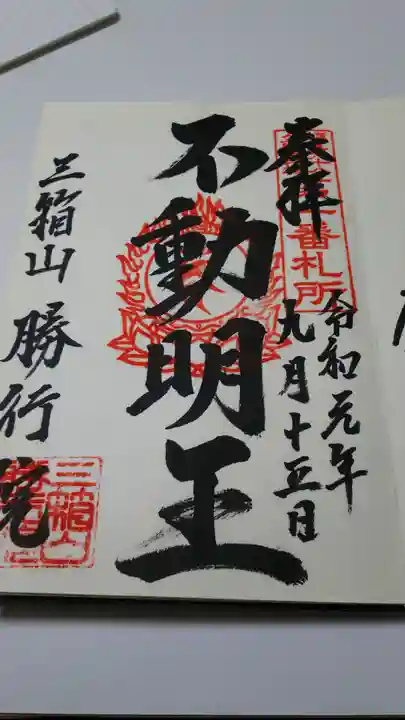 奉拝
番札所
令和元年
九月十五日
不動明王
三箱山 勝行院
三箱山